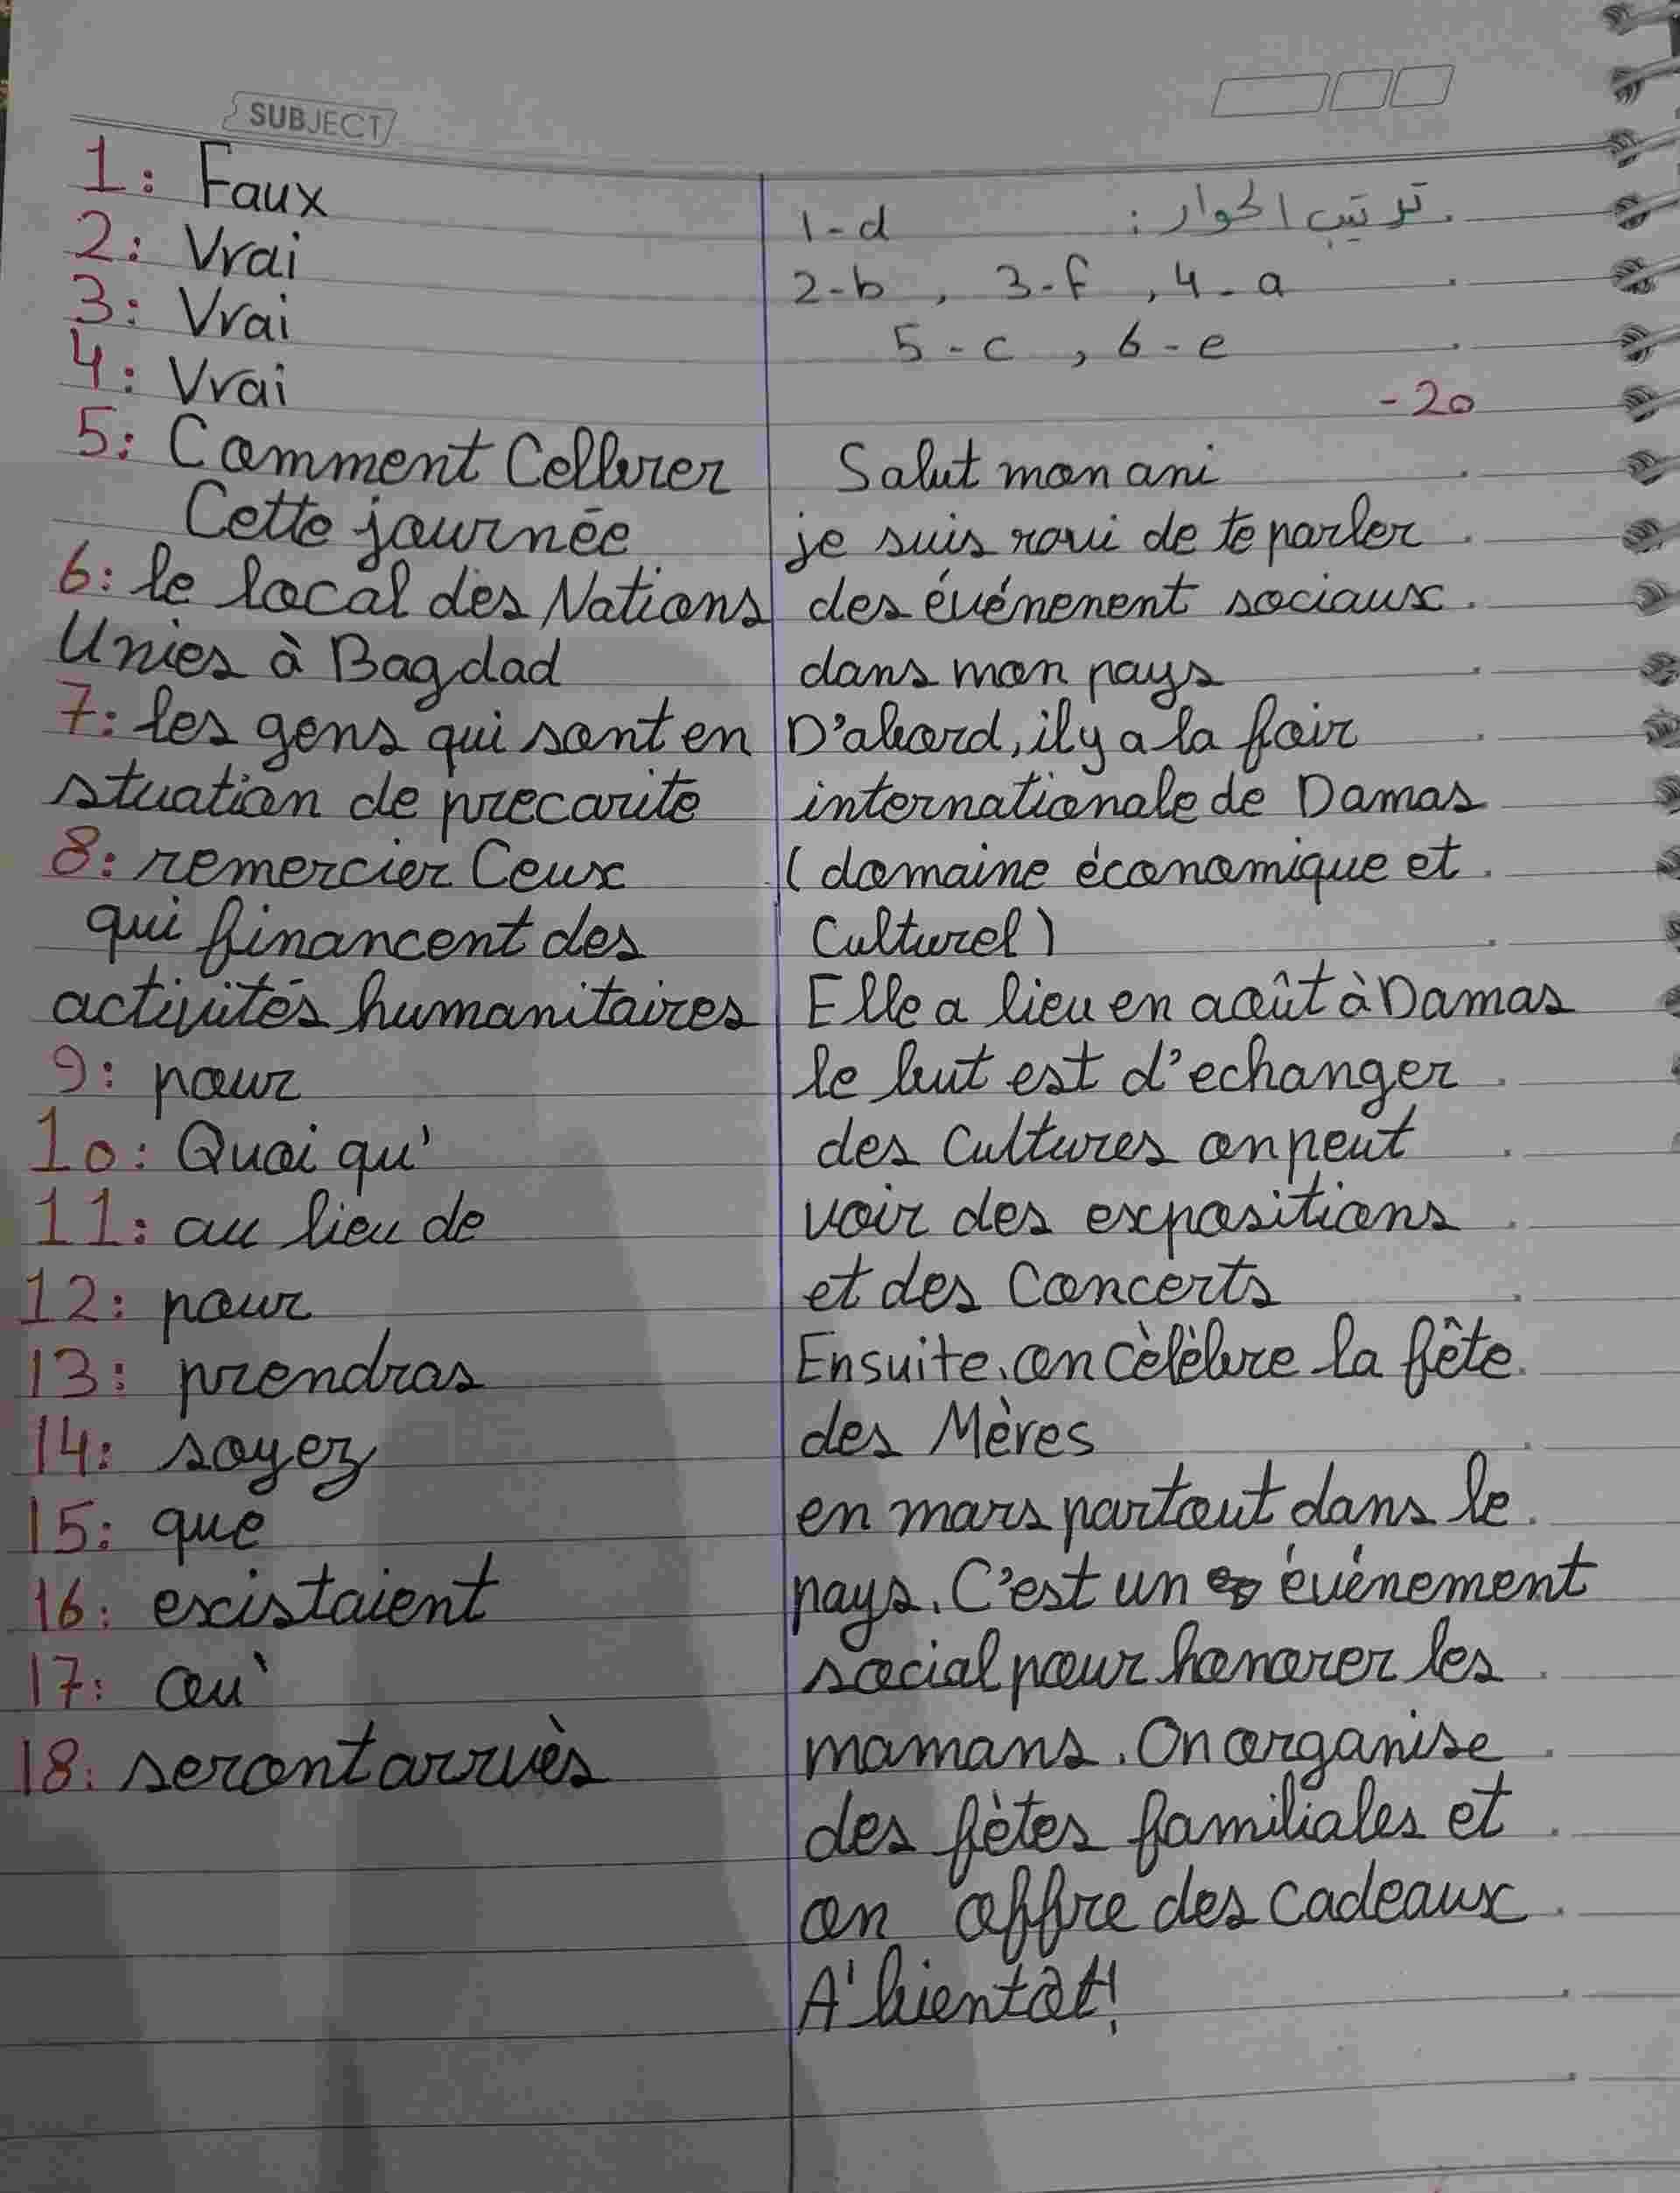 SUBJECT
1: Faux
2: Vrai
3: Vrai
4: Vrai
5: Comment Cellbrer
Cette journée
6: le local des Nations
Unies à Bagdad
7: les gens qui sont en
stuation de precarite
8: remercier Ceux
qui financent des
activités humanitaires
9: pour
10: Quoi qu'
11: au lieu de
12: pour
13: prendras
14: soyez
15: que
16: existaient
17: où
18: seront arrivès
ترتيب الحوار:
1-d
2-b, 3-f, 4-a
5-c, 6-e
-20
Salut mon ani
je suis ravi de te parler
des événenent sociaux
dans mon pays
D'abord, il y a la foir
internationale de Damas
(domaine économique et
Culturel)
Elle a lieu en août à Damas
le but est d'echanger
des Cultures on peut
voir des expositions
et des Concerts
Ensuite, on cèlèbre la fête
des Mères
en mars partout dans le
pays. C'est un événement
social pour honorer les
mamans. On organise
des fètes familiales et
on offre des cadeaux
A' bientôt!